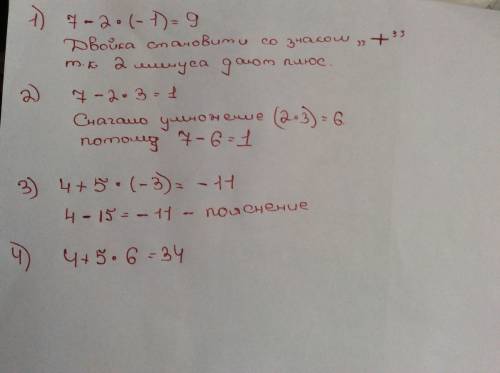 1) 7 - 2 • (-1) = 9
Двойка становити со знаком „+”
т.к 2 минуса дают плюс.
2) 7 - 2 • 3 = 1
Сначало умножение (2•3) = 6
потому 7 - 6 = 1
3) 4 + 5 • (-3) = -11
4 - 15 = -11 - пояснение
4) 4 + 5 • 6 = 34